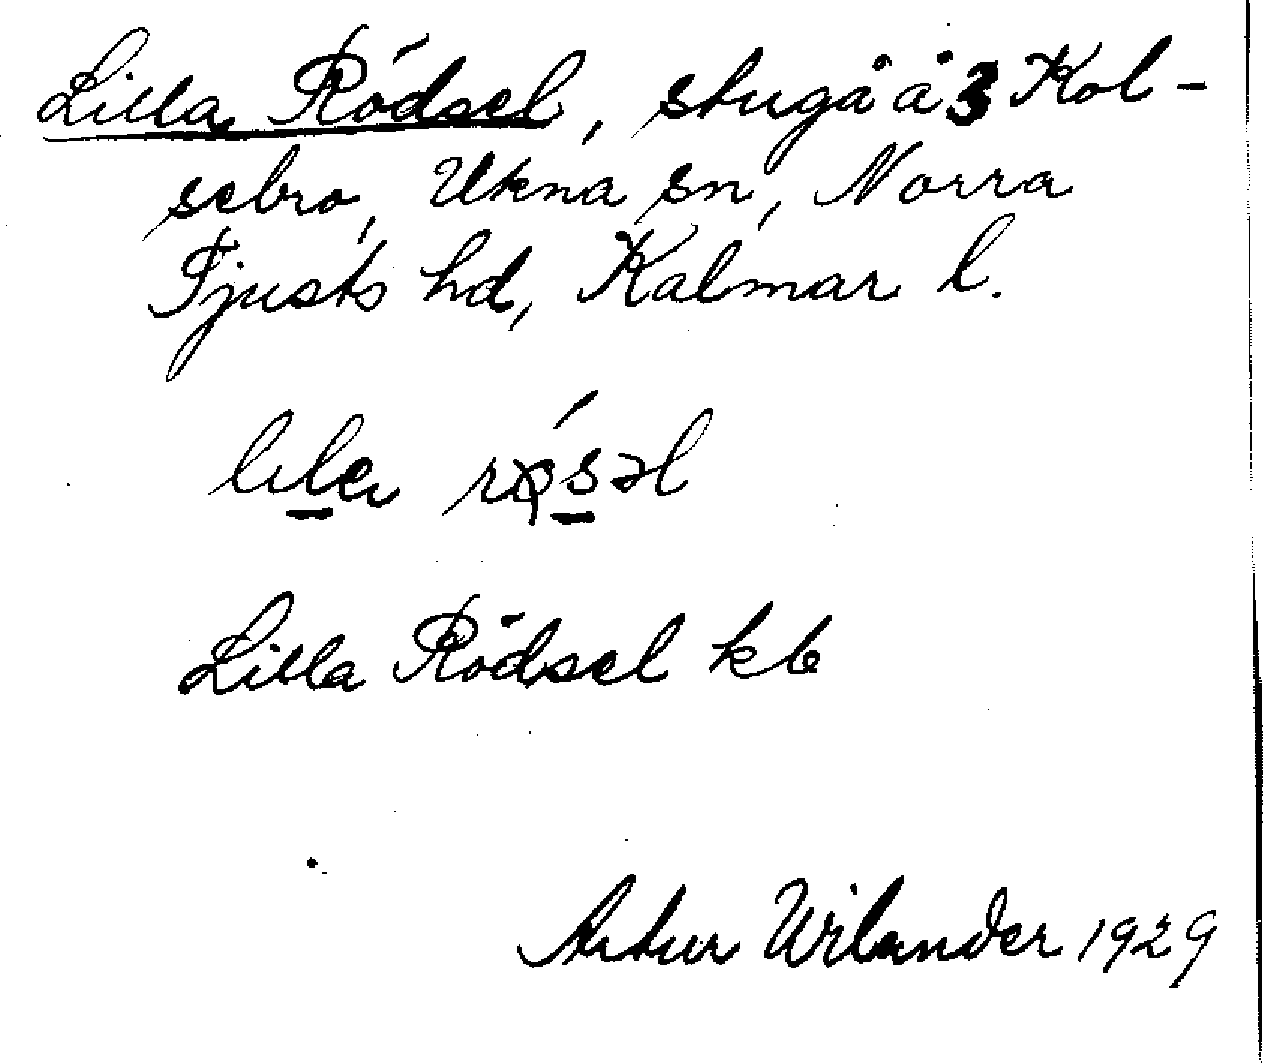 Lilla Rödsel, stuga å 3 Kol-
sebro, Ukna sn, Norra
Tjusts hd, Kalmar l.
Lilla Rödsel kb
Artur Wilander 1929